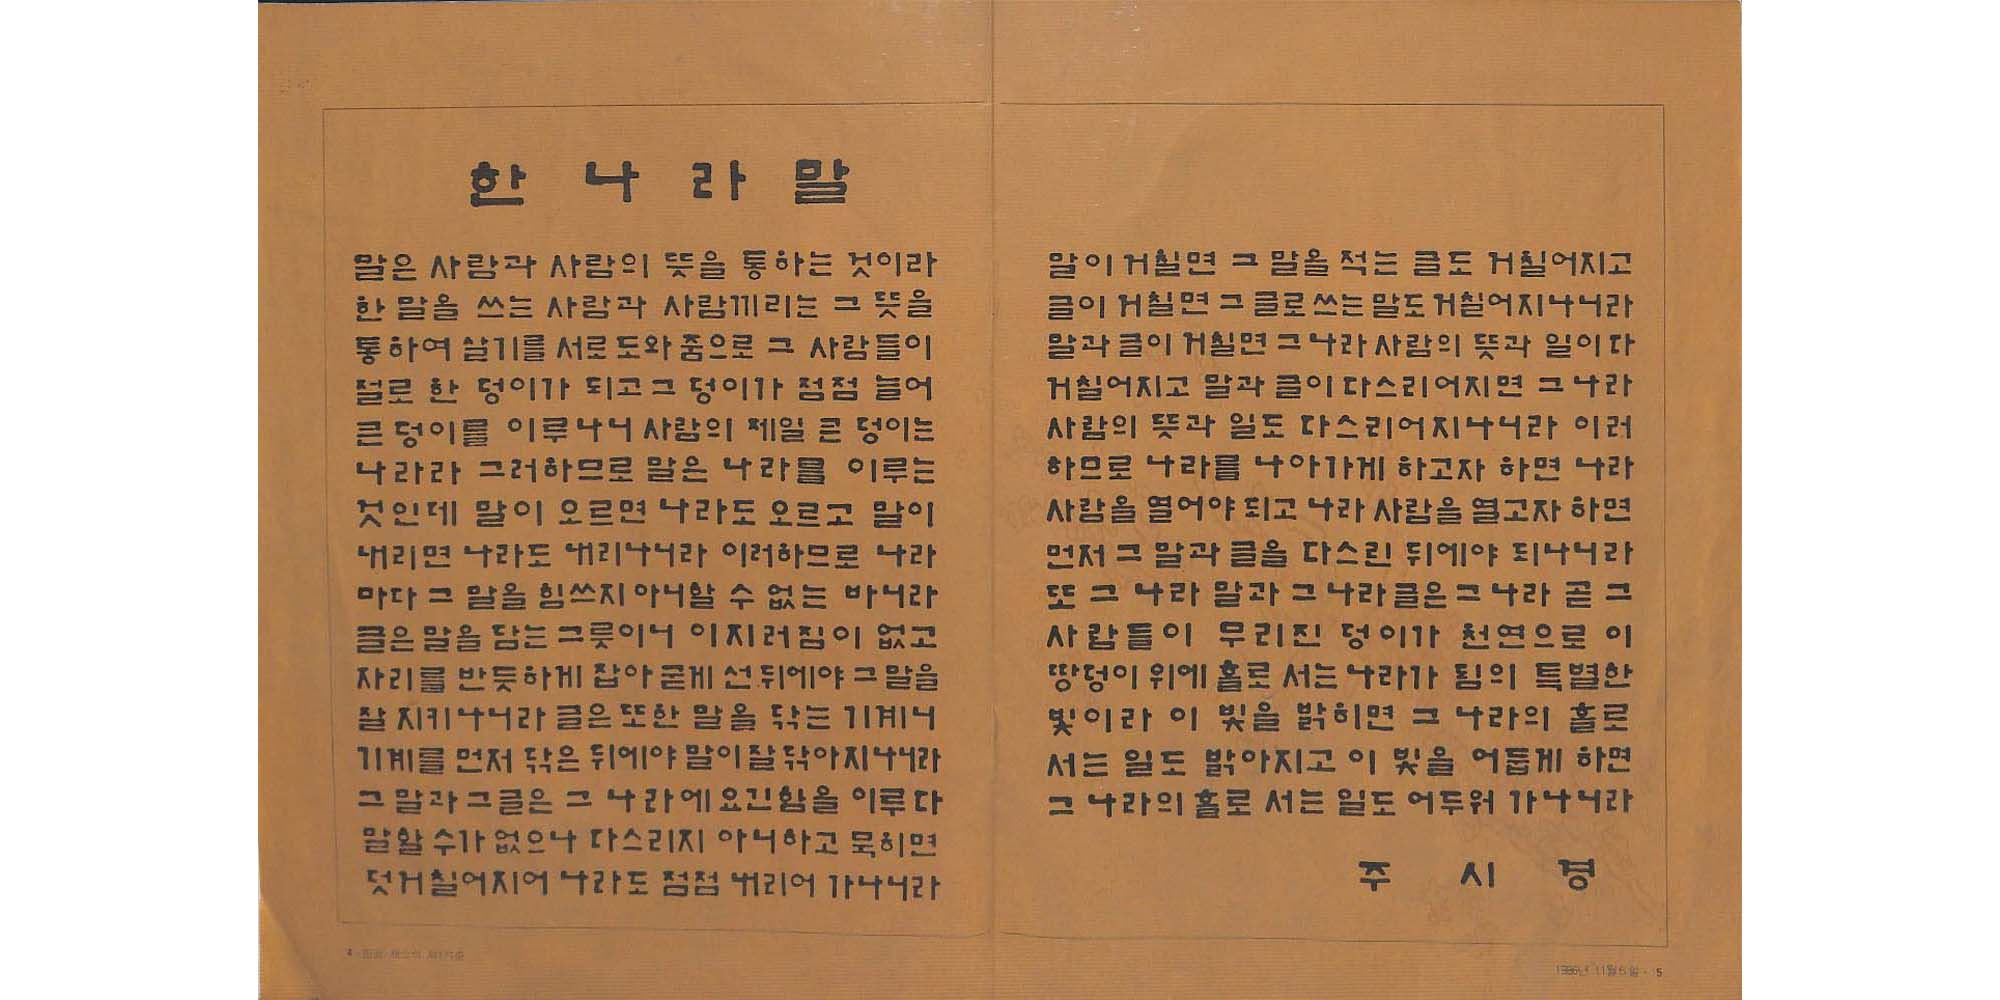 한 나 라 말
말은 사람과 사람의 뜻을 통하는 것이라
한 말을 쓰는 사람과 사람끼리는 그 뜻을
통하여 살기를 서로 도와줌으로 그 사람들이
절로 한 덩이가 되고 그 덩이가 점점 늘어
큰 덩이를 이루나니 사람의 제일 큰 덩이는
나라라 그러하므로 말은 나라를 이루는
것인데 말이 오르면 나라도 오르고 말이
내리면 나라도 내리나니라 이러하므로 나라
마다 그 말을 힘쓰지 아니할 수 없는 바니라
글은 말을 담는 그릇이니 이지러짐이 없고
자리를 반듯하게 잡아 굳게 선 뒤에야 그 말을
잘 지키나니라 글은 또한 말을 닦는 기계니
기계를 먼저 닦은 뒤에야 말이 잘 닦아지나니라
그 말과 그 글은 그 나라에 요긴함을 이루 다
말할 수가 없으나 다스리지 아니하고 묵히면
덧거칠어지어 나라도 점점 내리어 가나니라
말이 거칠면 그 말을 적는 글도 거칠어지고
글이 거칠면 그 글로 쓰는 말도 거칠어지나니라
말과 글이 거칠면 그 나라 사람의 뜻과 일이 다
거칠어지고 말과 글이 다스리어지면 그 나라
사람의 뜻과 일도 다스리어지나니라 이러
하므로 나라를 나아가게 하고자 하면 나라
사람을 열어야 되고 나라 사람을 열고자 하면
먼저 그 말과 글을 다스린 뒤에야 되나니라
또 그 나라 말과 그 나라 글은 그 나라 곧 그
사람들이 무리진 덩이가 천연으로 이
땅덩이 위에 홀로 서는 나라가 됨의 특별한
빛이라 이 빛을 밝히면 그 나라의 홀로
서는 일도 밝아지고 이 빛을 어둡게 하면
그 나라의 홀로 서는 일도 어두워 가나니라
주 시 경
4
1986년 11월 5일 · 5